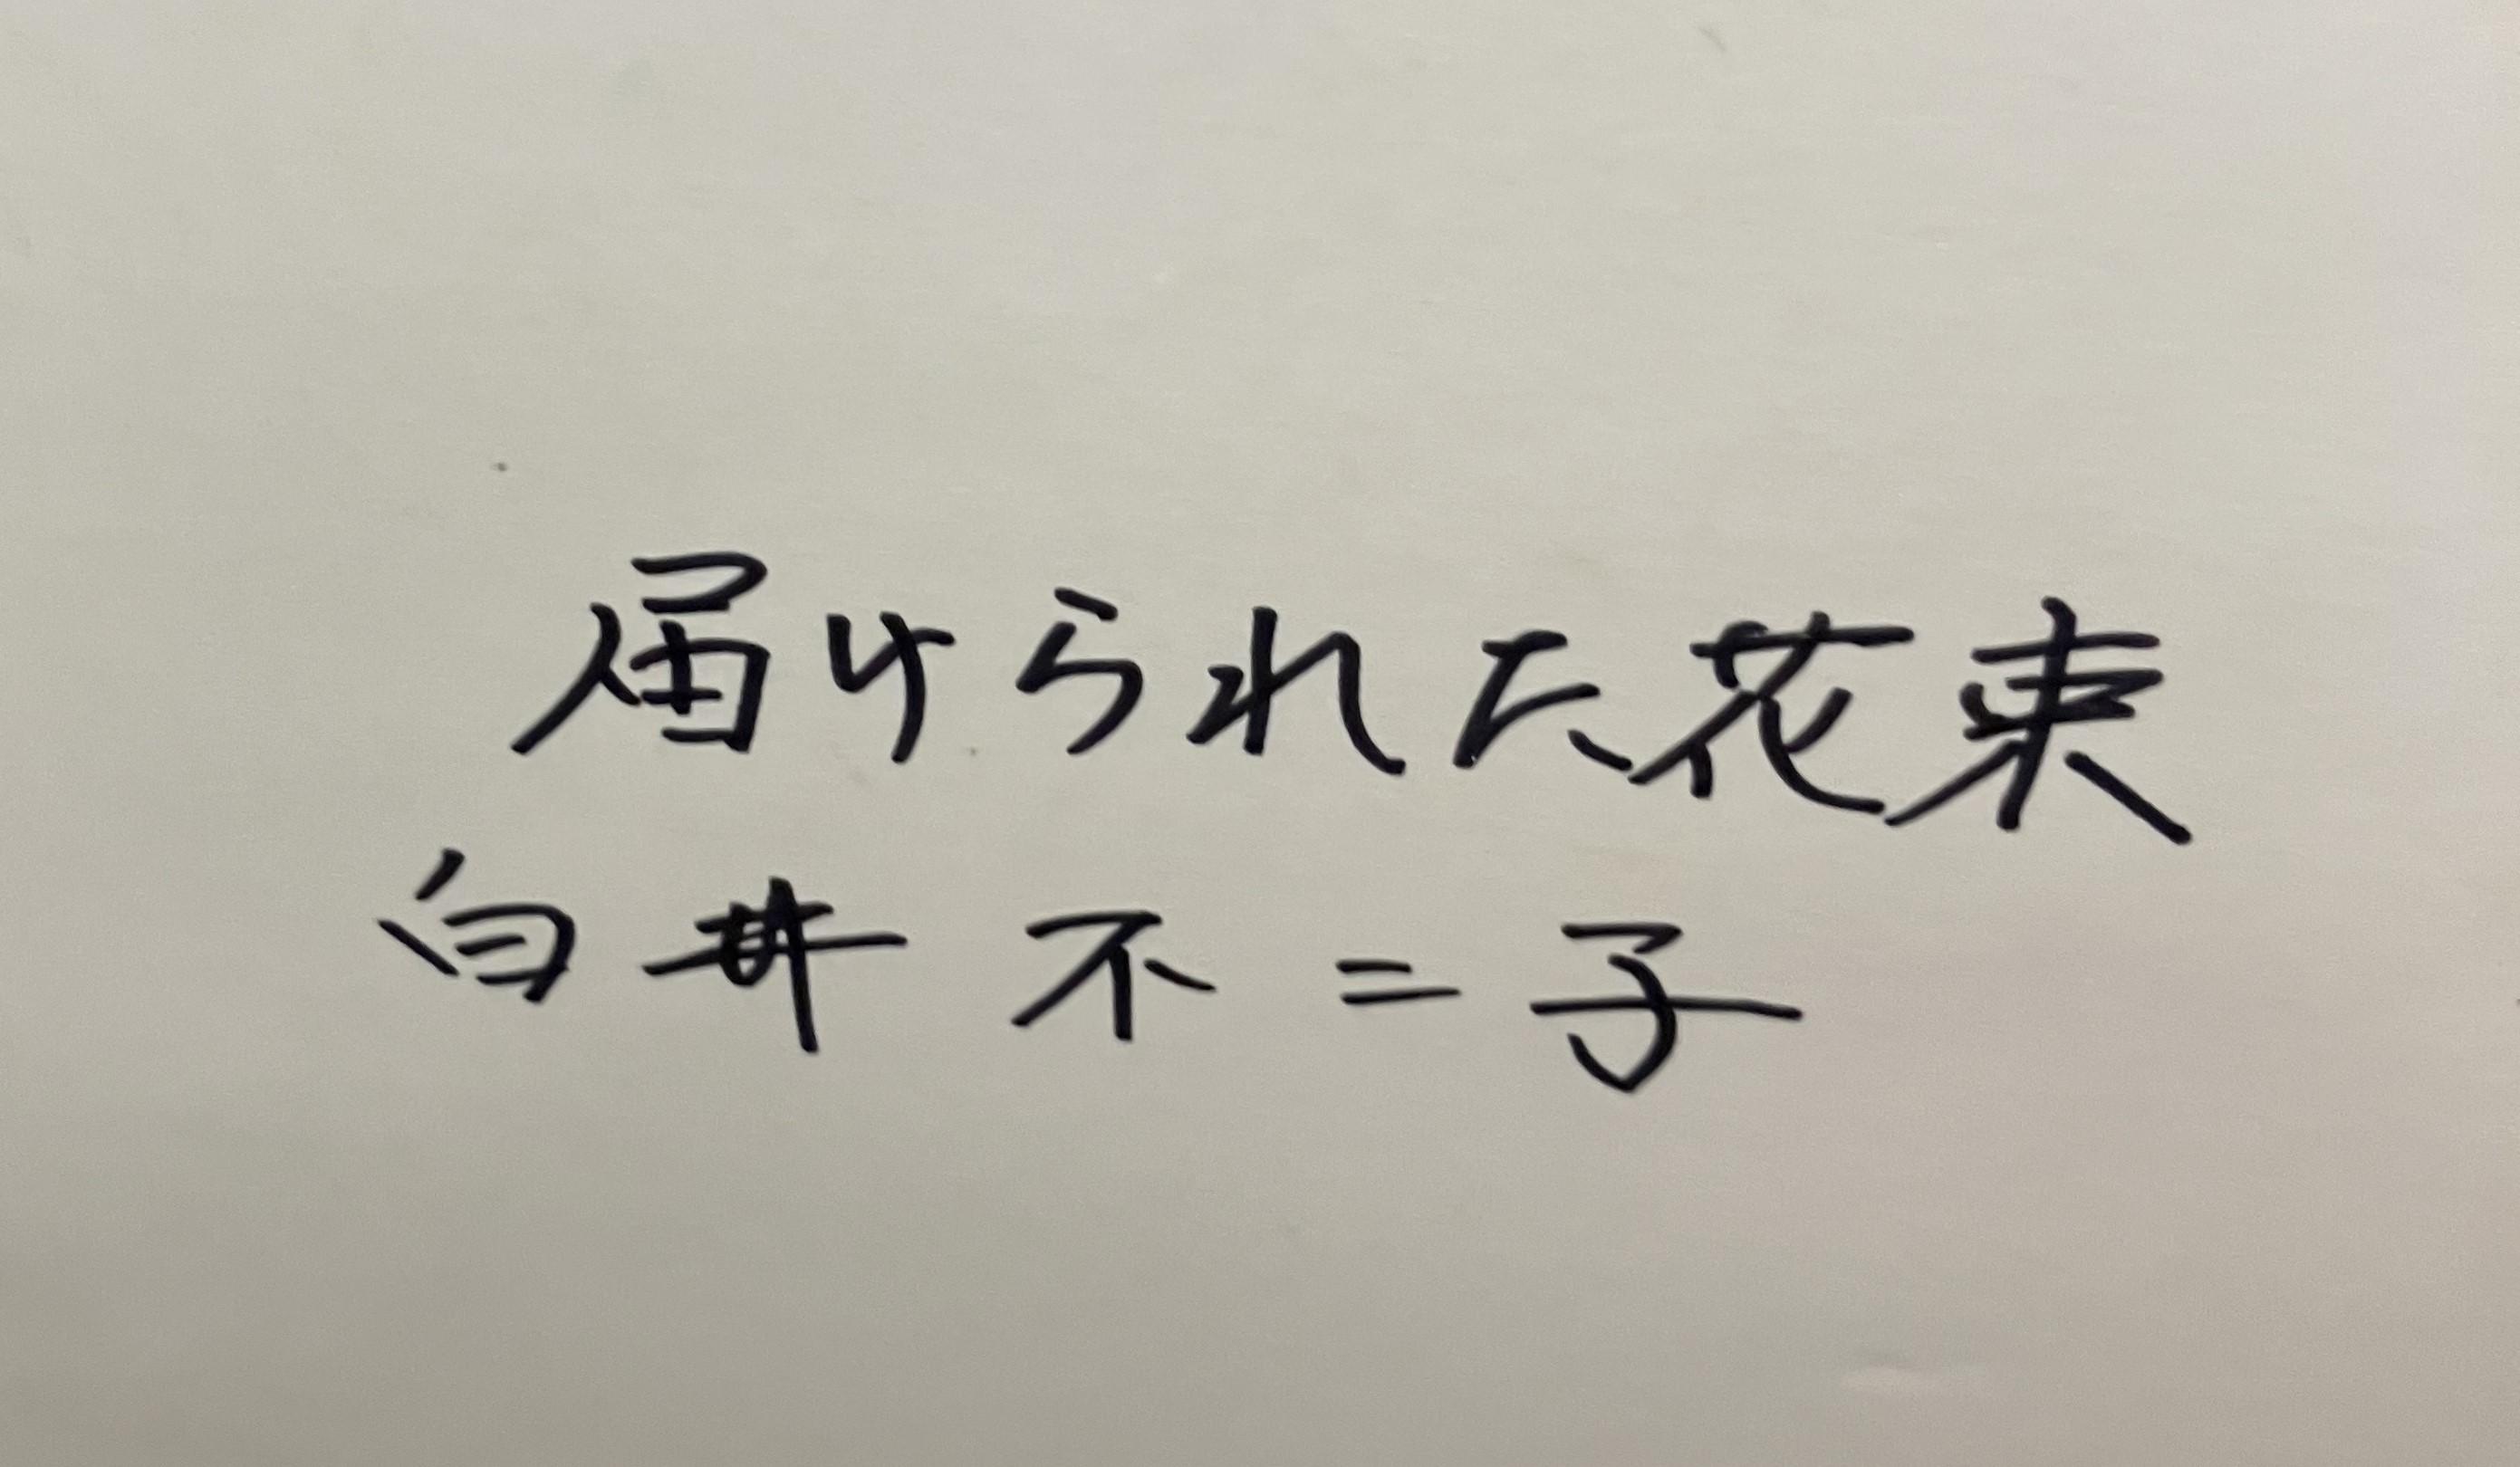 届けられた花束
白井不二子